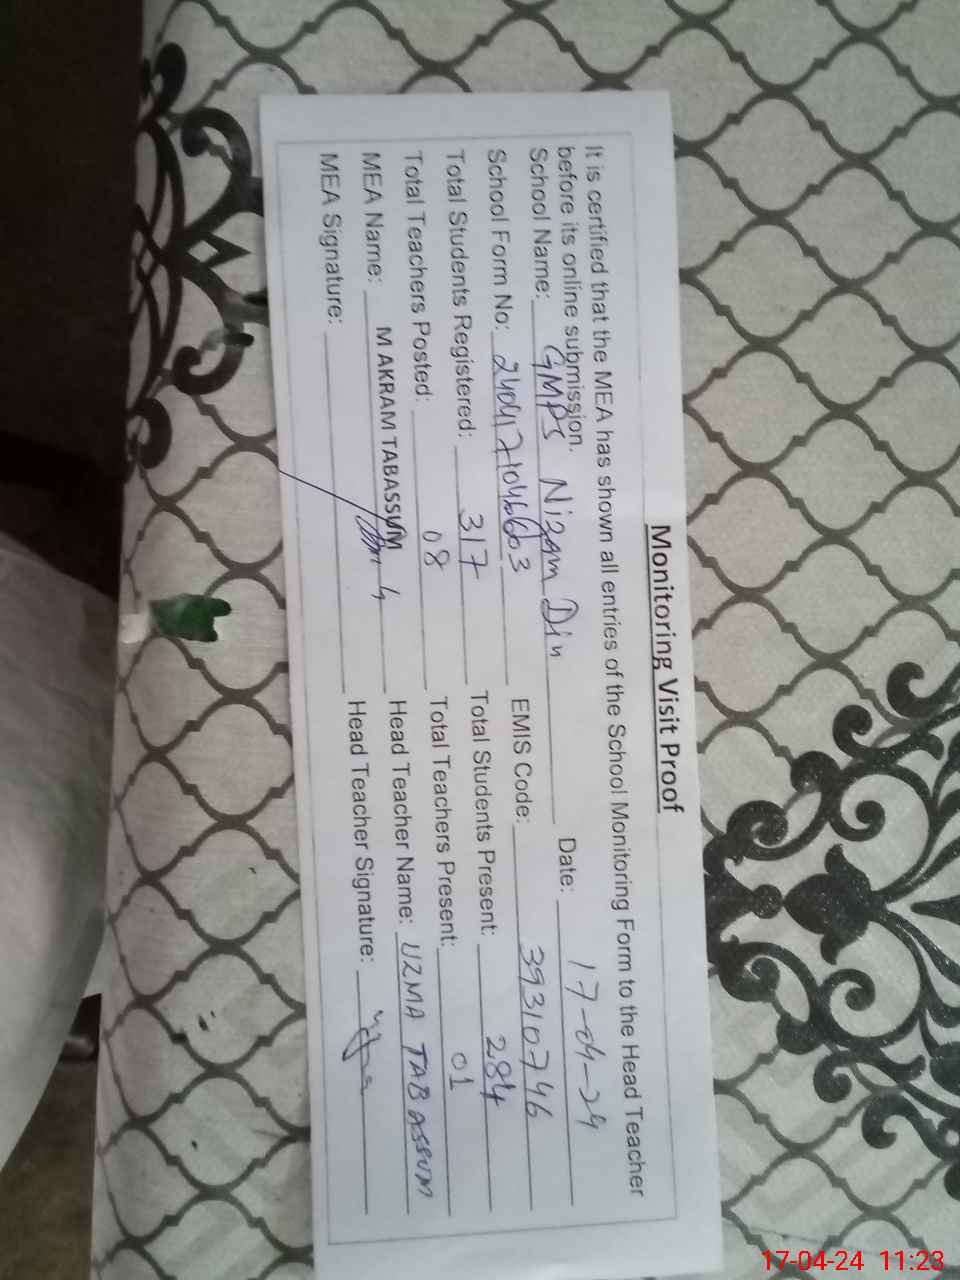 Monitoring Visit Proof
It is certified that the MEA has shown all entries of the School Monitoring Form to the Head Teacher
before its online submission.
School Name: GMPS Nizam Din Date: 17-04-24
School Form No: 2404171046603 EMIS Code: 39310746
Total Students Registered: 317 Total Students Present: 284
Total Teachers Posted: 08 Total Teachers Present: 01
MEA Name: M AKRAM TABASSUM Head Teacher Name: UZMA TABASSUM
MEA Signature: Head Teacher Signature:
17-04-24 11:23